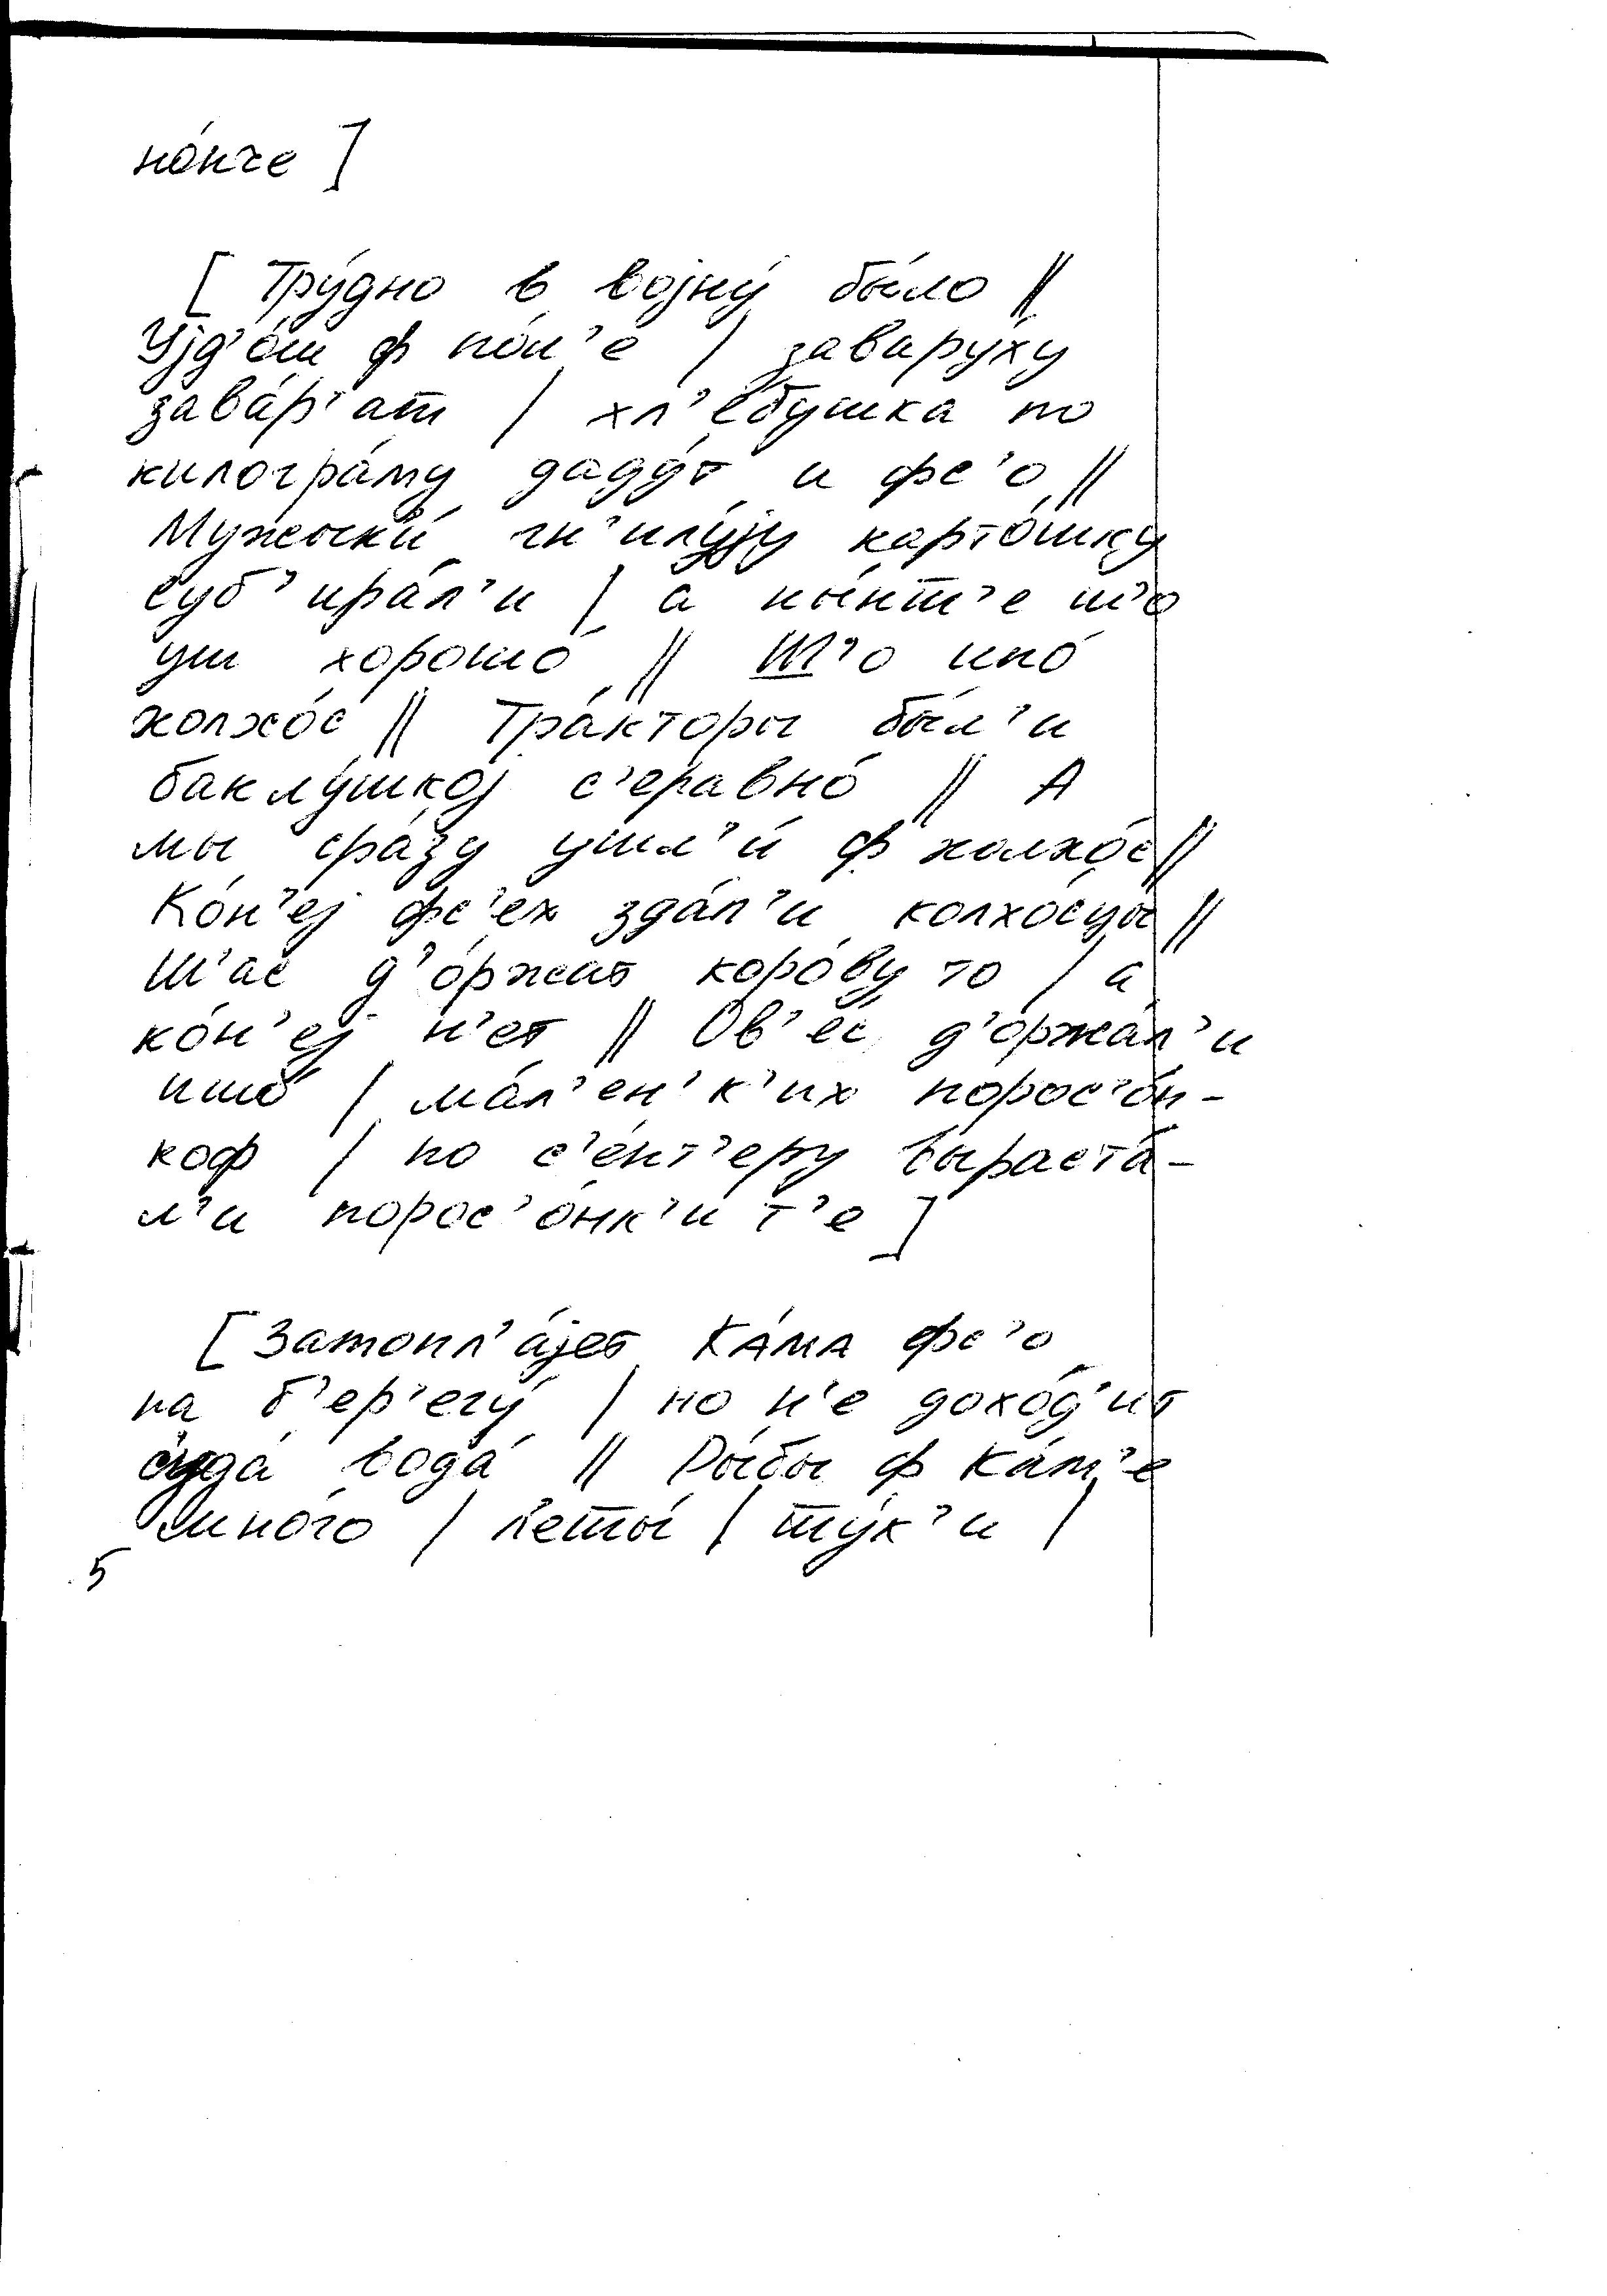 но́нче ]
[ Тру́дно в војну́ бы́ло ||
Ујд'о́ш ф по́л'е | завару́ху
зава́р'ат | хл'е́бушка по
килогра́му даду́т и фс'о ||
Мужыки́ гн'илу́ју карто́шку
суб'ира́л'и | а ны́нш'е ш'о
уш хорошо́ || Ш'о ино́
колхо́с || Тра́кторы бы́л'и
баклу́шкој с'еравно́ || А
мы сра́зу ушл'и́ ф колхо́с ||
Ко́н'еј фс'ех зда́л'и колхо́сцы ||
Ш'ас д'о́ржат коро́ву то | а
ко́н'еј н'ет || Ов'е́с д'оржа́л'и
ишо́ | ма́л'ен'к'их порос'о́н-
коф | по с'е́нт'еру выраста́-
л'и порос'о́нк'и т'е ]
[ Затопл'а́јет Ка́ма фс'о
на б'ер'егу́ | но н'е дохо́д'ит
суда́ вода́ || Ры́бы ф Ка́м'е
мно́го | | шу́к'и |
5